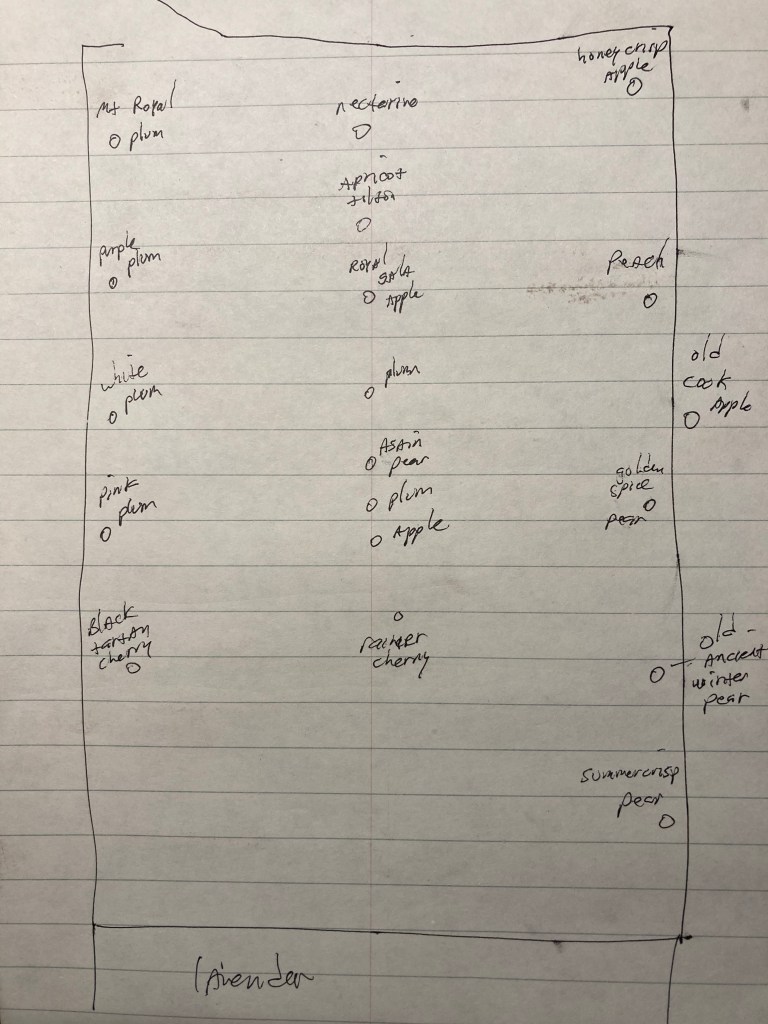 honeycrisp
Apple
Mt Royal
plum
nectarine
Apricot
tilton
purple
plum
Royal
GALA
Apple
Peach
white
plum
plum
old
cook
Apple
Asain
pear
golden
spice
pear
pink
plum
plum
Apple
Black
tartan
cherry
rainer
cherry
old -
Ancient
winter
pear
summercrisp
pear
lavender